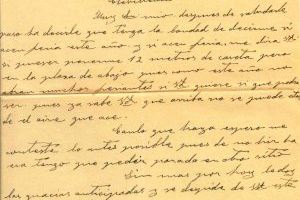 Muy Sr mio despues de saludarle
paso ha decirle que tenga la bondad de decirme si
acen feria este año y si acen feria me dira Vd
si quieren ponerme 12 metros de caseta pero
en la plaza de abajo pues como este año no
abran muchos feriantes si Vd quiere si que podra
ser, pues ya sabe Vd que arriba no se puede
de el aire que ace.
Sin lo que haga espero me
conteste lo antes posible pues de no ser ha
va tengo que pedir parada en otro sitio
Sin mas por hoy le doy
las gracias anticipadas y se despide de Vd este